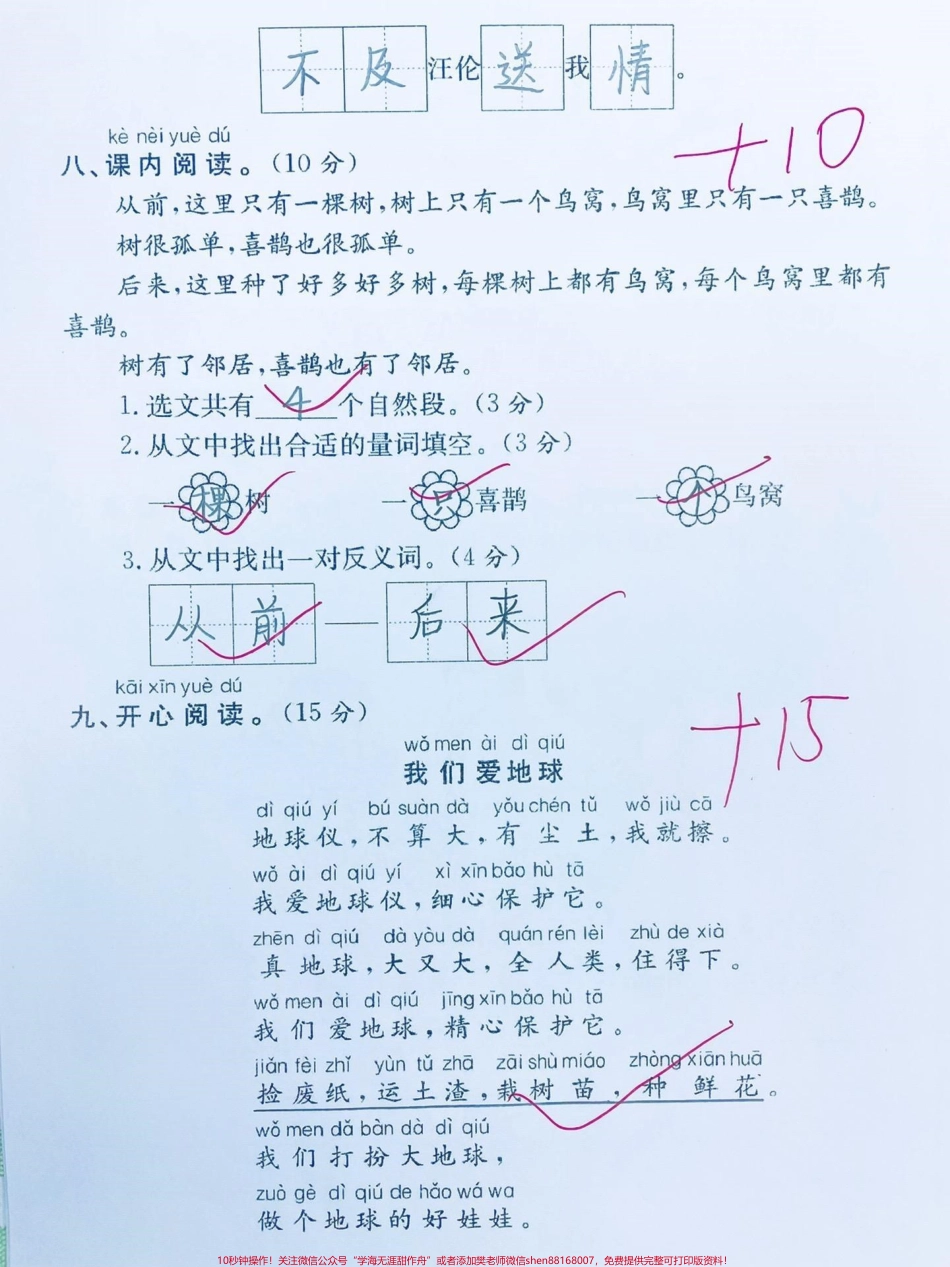 不及汪伦送我情。
+10
kè nèi yuè dú
八、课内阅读。(10分)
从前,这里只有一棵树,树上只有一个鸟窝,鸟窝里只有一只喜鹊。
树很孤单,喜鹊也很孤单。
后来,这里种了好多好多树,每棵树上都有鸟窝,每个鸟窝里都有
喜鹊。
树有了邻居,喜鹊也有了邻居。
1.选文共有4个自然段。(3分)
2.从文中找出合适的量词填空。(3分)
一棵树 一只喜鹊 一个鸟窝
3.从文中找出一对反义词。(4分)
从前——后来
kāi xīn yuè dú
九、开心阅读。(15分)
+15
wǒ men ài dì qiú
我们爱地球
dì qiú yí bú suàn dà yǒu chén tǔ wǒ jiù cā
地球仪,不算大,有尘土,我就擦。
wǒ ài dì qiú yí xì xīn bǎo hù tā
我爱地球仪,细心保护它。
zhēn dì qiú dà yòu dà quán rén lèi zhù de xià
真地球,大又大,全人类,住得下。
wǒ men ài dì qiú jīng xīn bǎo hù tā
我们爱地球,精心保护它。
jiǎn fèi zhǐ yùn tǔ zhā zāi shù miáo zhòng xiān huā
捡废纸,运土渣,栽树苗,种鲜花。
wǒ men dǎ bàn dà dì qiú
我们打扮大地球,
zuò gè dì qiú de hǎo wá wa
做个地球的好娃娃。
10秒钟操作!关注微信公众号“学海无涯甜作舟”或者添加樊老师微信shen88168007,免费提供完整可打印版资料!